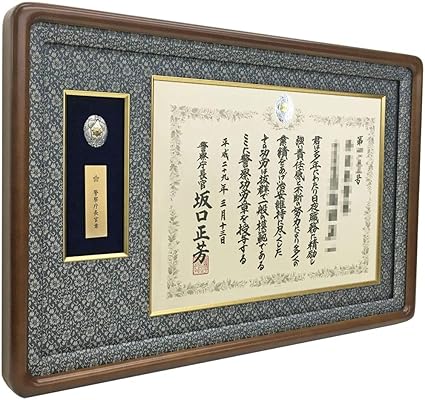 第 号
君は多年にわたり日夜職務に精励し
強い責任感と不断の努力により多くの
業績をあげ治安維持に尽くした
その功労は抜群で一般の模範である
ここに警察功労章を授与する
平成二九年 三月十三日
警察庁長官 坂口正芳
警察庁長官章